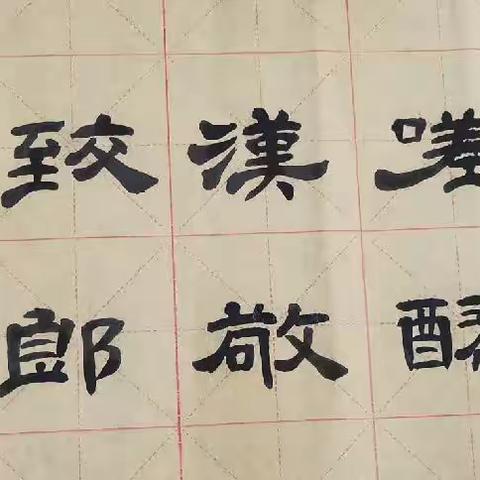 嗟
漢敬
致郎